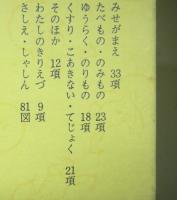 みせがまえ 33項
たべもの・のみもの 23項
ゆうらく・のりもの 18項
くすり・こあきない・てじょく 21項
そのほか 12項
わたしのきりえづ 9項
さしえ・しゃしん 81図